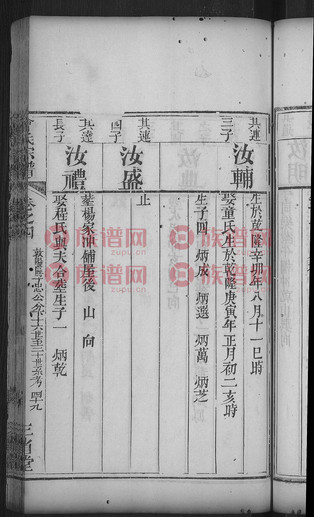 其連
三子
汝輔
生於乾隆辛卯年八月十一巳時
娶童氏生於乾隆庚寅年正月初二亥時
生子四 炳成 炳選 炳萬 炳芝
其連
四子
汝盛
止
其達
長子
汝禮
墓楊家汕鋪屋後 山 向
娶程氏與夫合墓生子一 炳乾
氏宗譜
卷之四
三省堂
族谱网
www.zupu.cn